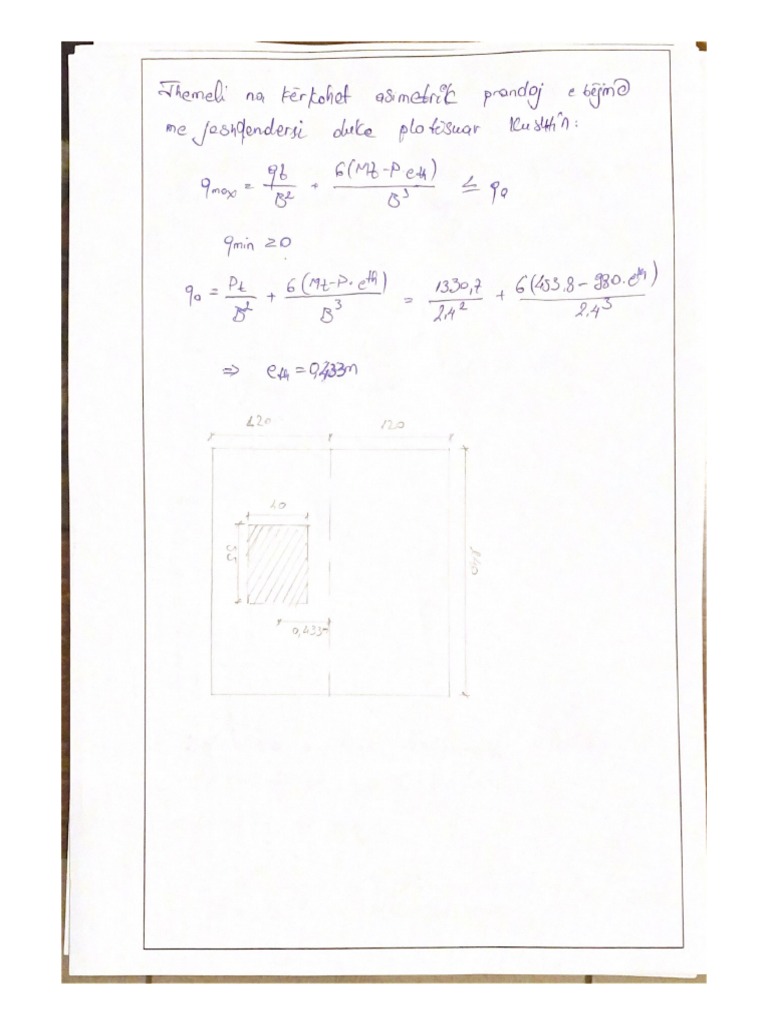 Themeli na kërkohet asimetrik prandaj e bëjmë
me jashqendersi duke plotësuar kushtin:
qmax = qt/B² + 6(Mt-P.eth)/B³ ≤ q0
qmin ≥0
q0 = Pt/B² + 6(Mt-P.eth)/B³ = 1330,7/2,4² + 6(453,8-980.eth)/2,4³
⇒ eth = 0,433m
120 120
40
55
240
0,433m